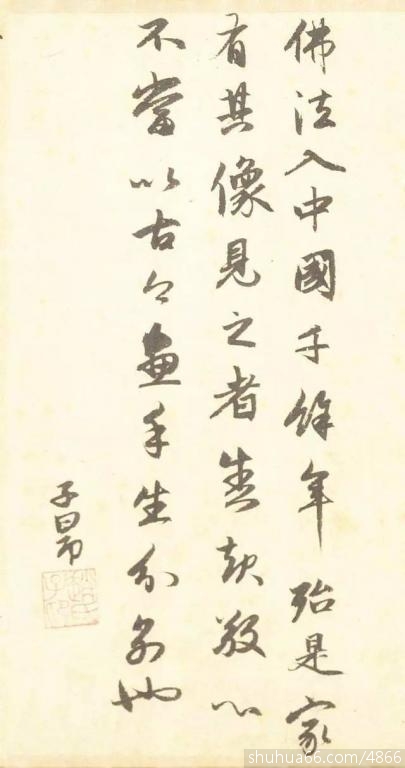 佛法入中國千餘年殆是家
有其像見之者起敬心
不當以古今畫手生分別也
子昂
趙氏子昂
shuhua66.com/4866